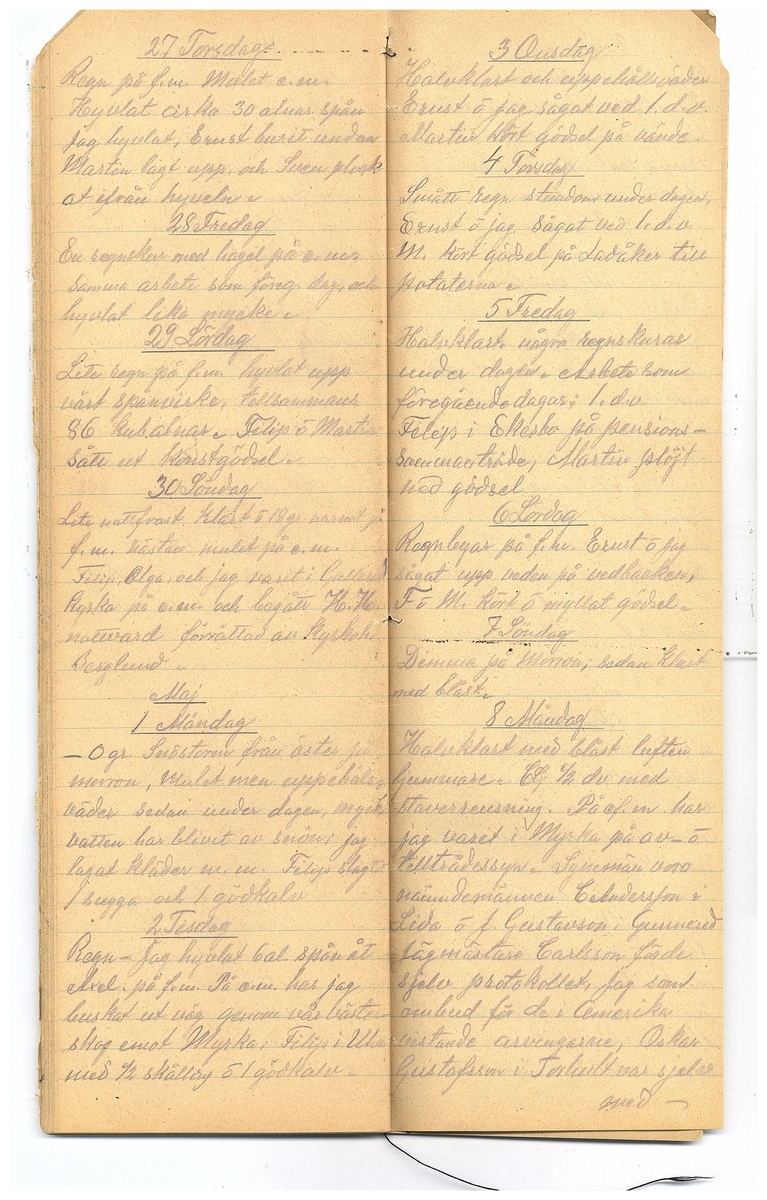 27 Torsdag
Regn på f.m. Mulet e.m.
Hyvlat cirka 30 alnar spån
jag hyvlat, Ernst burit undan
Martin lagt upp, och Sven plock
at ifrån hyveln.
28 Fredag
En regnskur med hagel på e.m.
samma arbete som föreg. dag, och
hyvlat lika mycke.
29 Lördag
Lite regn på f.m. hyvlat upp
vårt spånvirke, tillsammans
86 kubalnar. Filip ö Martin
sått ut konstgödsel.
30 Söndag
Lite nattfrost, klart ö 18 gr. varmt på
f.m. nästan mulet på e.m.
Filip, Olga, och jag varit i
Kyrka på e.m. och begått H.H.
nattvard förrättad av Kyrkoh.
Berglund.
Maj
1 Måndag
– 0 gr. Snöstorm från öster på
morron, Mulet men uppehåls-
väder sedan under dagen, mycke
vatten har blivit av snön; jag
lagat kläder m.m. Filip slagtat
1 sugga och 1 gödkalv
2 Tisdag
Regn – Jag hyvlat 6 al. spån åt
Axel. på f.m. På e.m. har jag
buskat ut väg genom vår väster
skog emot Myrka; Filip i
med 1/2 skålling ö 1 gödkalv.
3 Onsdag
Halvklart och uppehållsväder
Ernst ö jag sågat ved 1. d.v.
Martin kört gödsel på vände.
4 Torsdag
Smått regn stundom under dagen,
Ernst ö jag sågat ved 1. d.v.
M. kört gödsel på Ladåker till
potaterna.
5 Fredag
Halvklart, några regnskurar
under dagen. Arbete som
föregående dagar; 1. d.v.
Filip i Ekesbo på pensions-
sammanträde, Martin plöjt
ned gödsel
6 Lördag
Regnbyar på f.m. Ernst ö jag
sågat upp veden på vedbacken;
F ö M. kört ö myllat gödsel.
7 Söndag
Dimma på Morron, sedan klart
med blåst.
8 Måndag
Halvklart med blåst luften
ljummare. 1/2 dv med
På ef.m har
jag varet i Myrka på av- ö
tillträdessyn. Synemän voro
nämndemännen C Andersson i
Lida ö J. Gustavson i Gunnered
Jägmästare Carlsson förde
sjelv protokollet, jag som
ombud för de i Amerika
varande arvingarne, Oskar
Gustafsson i Torhult var sjelv
med –